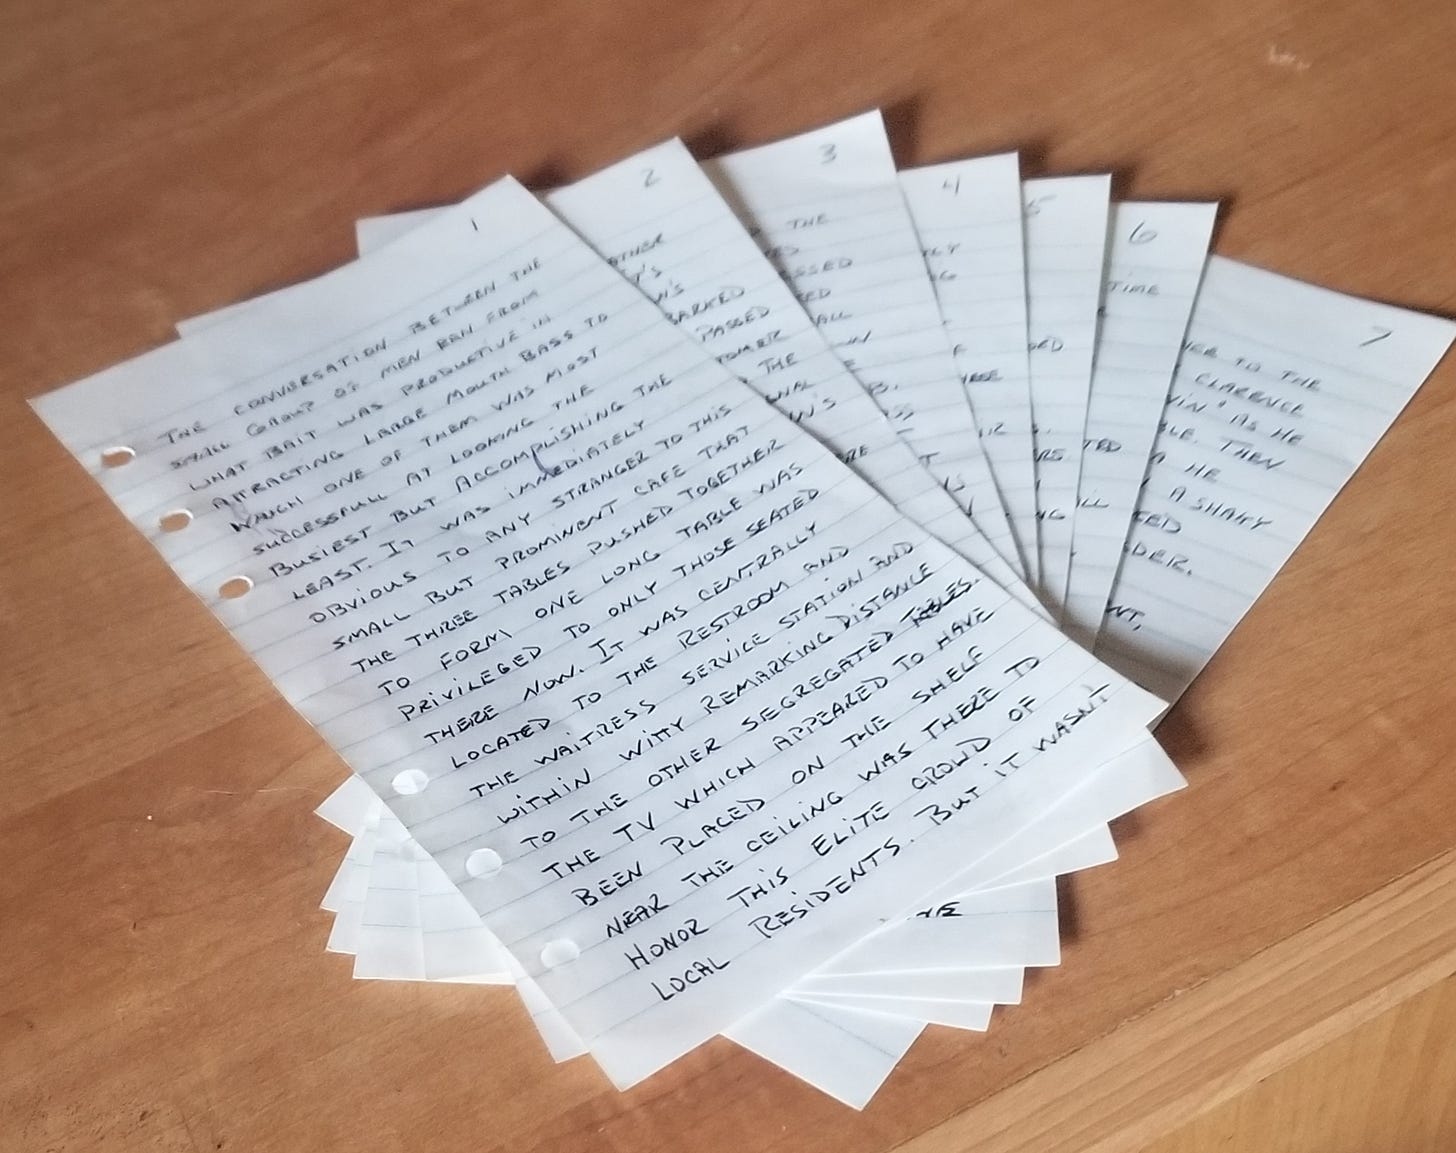 1
THE CONVERSATION BETWEEN THE
SMALL GROUP OF MEN RAN FROM
WHAT BAIT WAS PRODUCTIVE IN
ATTRACTING LARGE MOUTH BASS TO
WHICH ONE OF THEM WAS MOST
SUCCESSFULL AT LOOKING THE
BUSIEST BUT ACCOMPLISHING THE
LEAST. IT WAS IMMEDIATELY
OBVIOUS TO ANY STRANGER TO THIS
SMALL BUT PROMINENT CAFE THAT
THE THREE TABLES PUSHED TOGETHER
TO FORM ONE LONG TABLE WAS
PRIVILEGED TO ONLY THOSE SEATED
THERE NOW. IT WAS CENTRALLY
LOCATED TO THE RESTROOM AND
THE WAITRESS SERVICE STATION AND
WITHIN WITTY REMARKING DISTANCE
TO THE OTHER SEGREGATED TABLES.
THE TV WHICH APPEARED TO HAVE
BEEN PLACED ON THE SHELF
NEAR THE CEILING WAS THERE TO
HONOR THIS ELITE CROWD OF
LOCAL RESIDENTS. BUT IT WASNT
2
BARKED
PASSED
THE
3
THE
ALL
4
5
6
TIME
7
TO THE
CLARENCE
AS HE
THEN
HE
A SHAKY